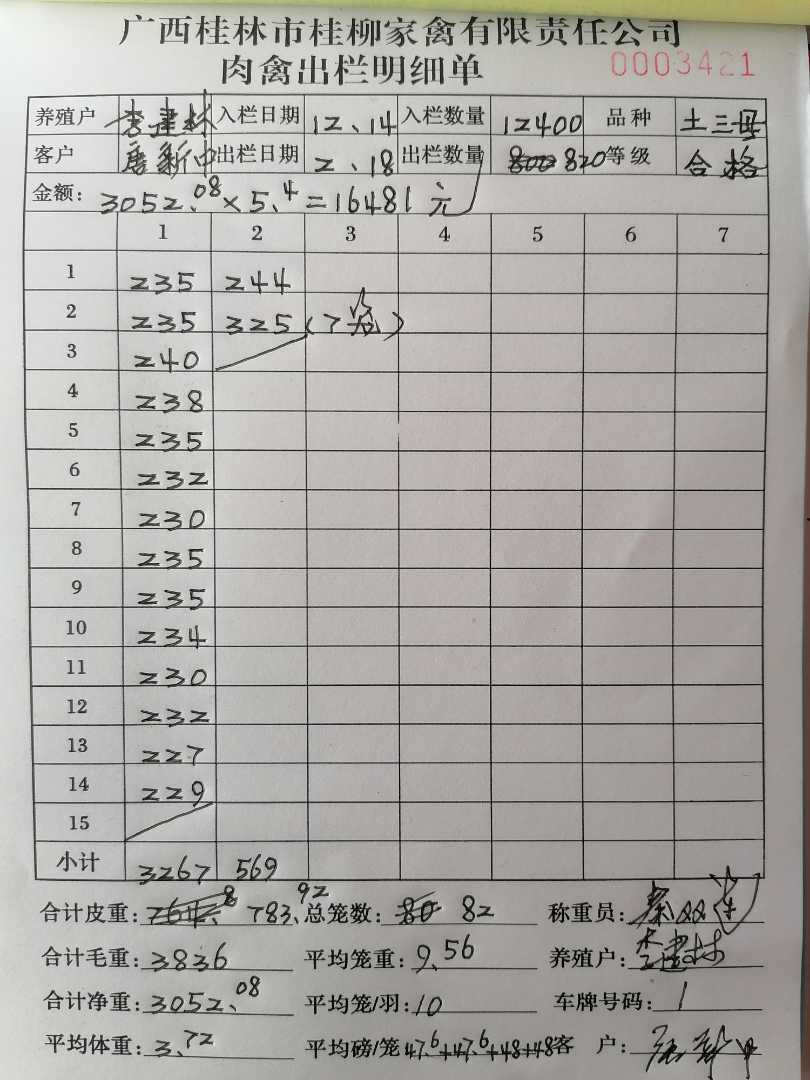 广西桂林市桂柳家禽有限责任公司
肉禽出栏明细单 0003421
养殖户 李建林 入栏日期 12、14 入栏数量 12400 品种 土三母
客户 唐新中 出栏日期 2、18 出栏数量 800 820 等级 合格
金额: 3052.08×5.4=16481元
1 2 3 4 5 6 7
1 235 244
2 235 325(7笼)
3 240
4 238
5 235
6 232
7 230
8 235
9 235
10 234
11 230
12 232
13 227
14 229
15
小计 3267 569
合计皮重: 764.8 783.92 总笼数: 80 82 称重员: 秦双
合计毛重: 3836 平均笼重: 9.56 养殖户: 李建林
合计净重: 3052.08 平均笼/羽: 10 车牌号码: 1
平均体重: 3.72 平均磅/笼 47.6+47.6+48+48 客 户: